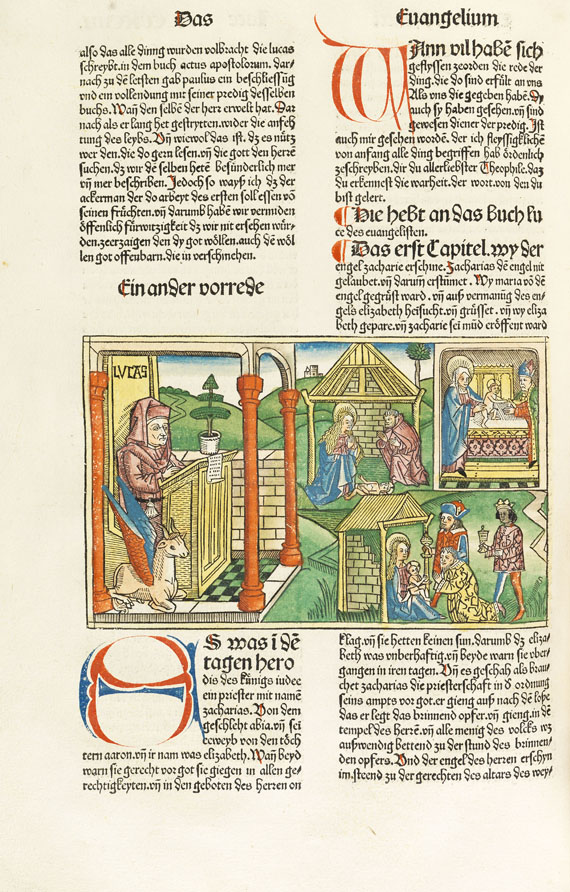 Das
Euangelium
also das alle dinng wurden volbracht die lucas
schreybt.in dem buch actus apostolorum. dar⸗
nach zu dē letsten gab paulus ein beschliessūg
vnd ein vollendung mit seiner predig desselben
buchs. Wañ den selbē der herr erwelt hat. Dar
nach als er lang het gestrytten.wider die anfech
tung des leybs. Vñ wiewol das ist. dz es nütz
wer den.die do gern lesen.vñ die gott den herrē
suchen.dz wir dē selben hetē besünderlich mer
vñ mer beschriben. Jedoch so wayß ich dz der
ackerman der do arbeyt des ersten soll essen võ
seinen früchten.vñ darumb habē wir vermiden
öffenlich fürwitzigkeit dz wir nit erschen wür⸗
den.zeerzaigen den dy got wöllen.auch dē wöl
len got offenbarn.die in verschmehen.
Ein ander vorrede
WAnn vil habē sich
geflyssen zeorden die rede der
ding.die do sind erfült an vns
Als vns die gegeben habē. Dy
auch sy haben gesehen.vñ sind
gewesen diener der predig. Ist
auch mir gesehen wordē. der ich fleyssigklichē
von anfang alle ding begriffen hab ordenlich
zeschreyben.dir du allerliebster Theophile.daz
du erkennest die warheit.der wort.von den du
bist gelert.
Hie hebt an das buch lu
ce des euangelisten.
Das erst Capitel.wy der
engel zacharie erschine. Zacharias dē engel nit
gelaubet.vñ darum erstūmet. Wy maria võ dē
engel gegrüst ward. vñ auß vermanūg des en⸗
gels elizabeth heÿsucht.vñ grüsset. vñ wy eliza
beth gepare.vñ zacharie sei mūd eröffent ward
LVCAS
ES was ī dē
tagen hero
dis des künigs iudee
ein priester mit namē
zacharias. Von dem
geschlecht abia.vñ sei
eeweyb von den töch
tern aaron.vñ ir nam was elizabeth. Wañ beyd
warn sie gerecht vor got sie giegen in allen ge⸗
rechtigkeyten.vñ in den geboten des herren on
klag.vñ sie hetten keinen sun.darumb dz eliza⸗
beth was vnberhaftig.vñ beyde warn sie vber⸗
gangen in iren tagen. Vñ es geschah als brau⸗
chet zacharias die priesterschaft in d ordnung
seins ampts vor got.er gieng auß nach dē loße
das er legt das brinnend opfer.vñ gieng.in dē
tempel des herrē.vñ alle menig des volcks wz
außwendig bettend zu der stund des brinnen⸗
den opfers. Vnd der engel des herren erschyn
im.steend zu der gerechten des altars des wey⸗